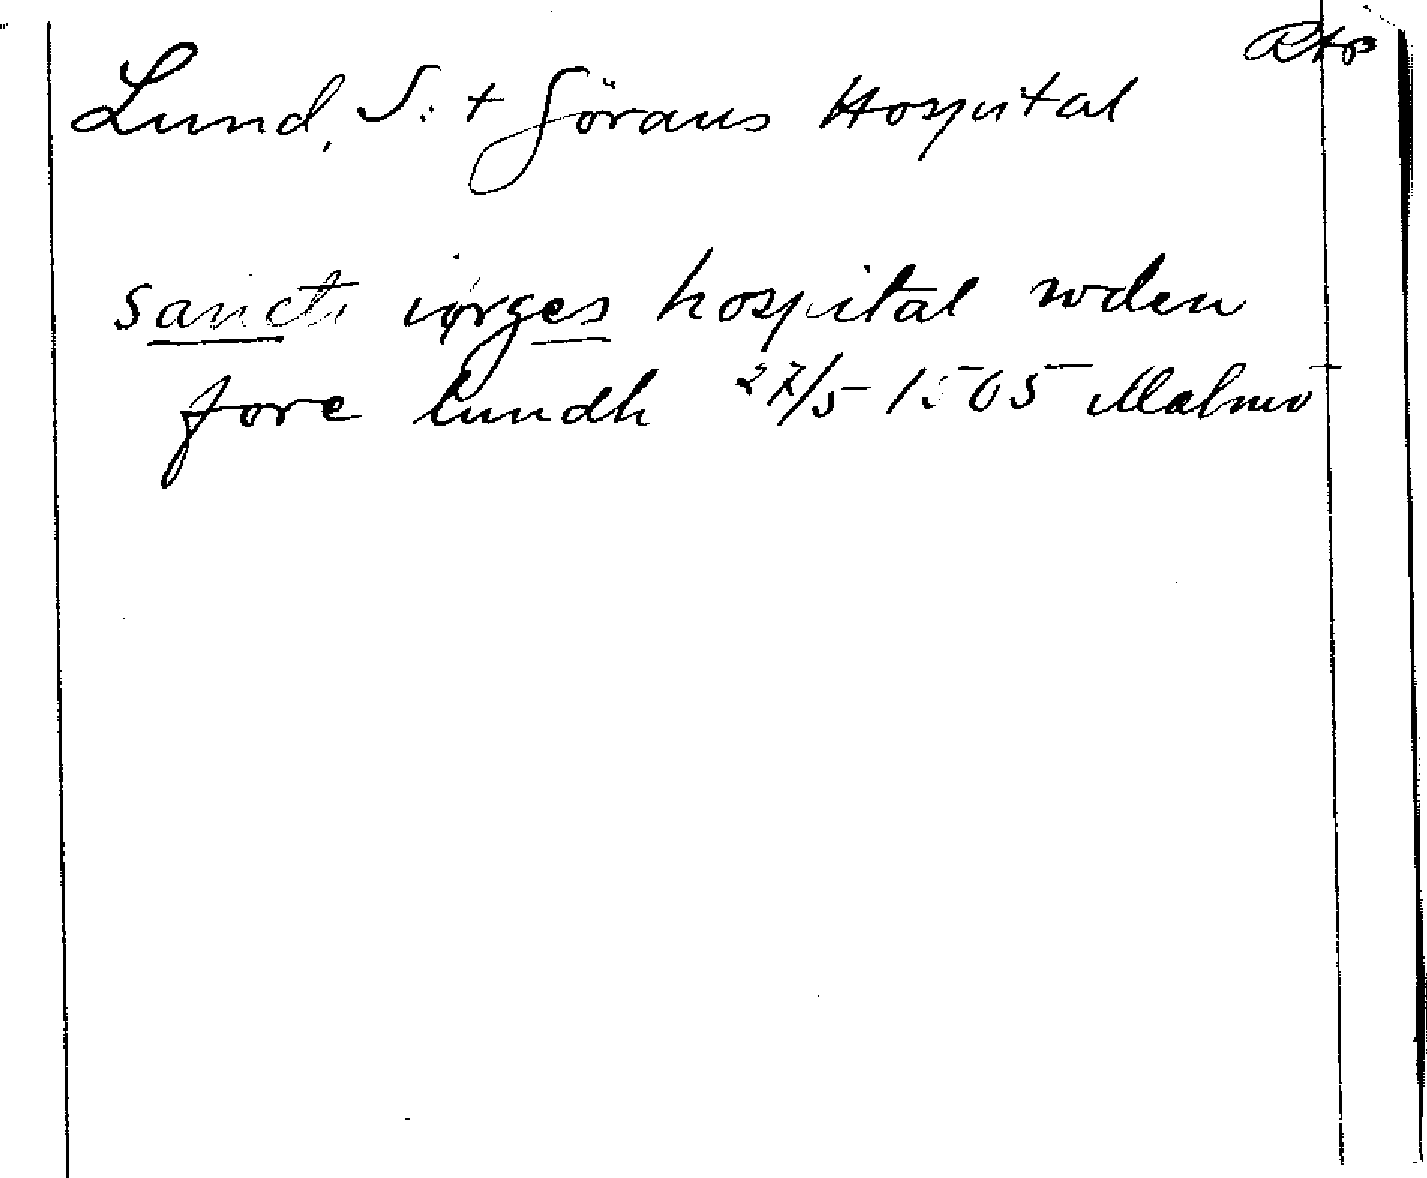 Rtp
Lund, S:t Görans Hospital
sancti iørges hospital wden
fore lundh 27/5 1505 Malmö